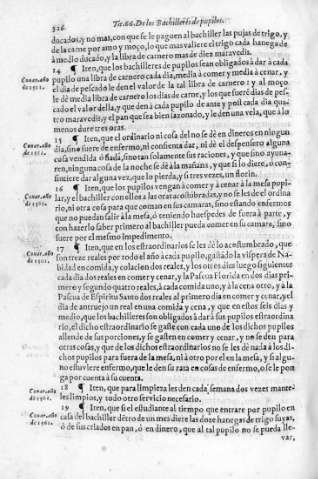 326 Tit.64. De los Bachilleres de pupilos.
ducados, y no mas, con que se le paguen al bachiller las pujas de trigo, y
de la carne por amo y moço, lo que mas valiere el trigo cada hanega de
à medio ducado, y la libra de carnero mas de diez maravedis.
14 ¶ Iten, que los bachilleres de pupilos sean obligados à dar à cada
pupilo una libra de carnero cada dia, media à comer y media à cenar, y
el dia de pescado le den el valor de la tal libra de carnero: y al moço
le dè media libra de carnero los dias de carne, y los que fuerè dias de pes-
cado el valor della, y que den à cada pupilo de ante y post cada dia qua-
tro maravedis, y el pan que sea bien sazonado, y le den una vela, que à lo
menos dure tres oras.
15 ¶ Iten, que el ordinario ni cosa del no se dè en dineros en ningun
dia, sino fuere de enfermo, ni consienta dar, ni dè el despensero alguna
cosa vendida ò fiada, sino tan solamente sus raciones, y que sino ayuna-
ren, ninguna cosa de la noche se dè à la mañana, y que si lo diere, ò con-
sintiere dar alguna vez, que lo pierda, y si tres vezes, un florin.
16 ¶ Iten, que los pupilos vengan à comer y à cenar à la mesa pupi-
lar, y el bachiller con ellos à las oras acostumbradas, y no se les dè el ordina
rio, ni otra cosa para que coman en sus camaras, sino estando enfermos
que no puedan salir à la mesa, ò teniendo huespedes de fuera à parte, y
con hazerlo saber primero al bachiller pueda comer en su camara, sino
fuere por el mesmo impedimento.
17 ¶ Iten, que en los estraordinarios se les dè lo acostumbrado, que
son treze reales por todo el año à cada pupilo, gastado la vispera de Na-
bidad en comida, y colacion dos reales, y los otros dias luego siguientes
cada dia dos reales en comer y cenar, y la Pascua Florida en dos dias pri-
mero y segundo quatro reales, à cada comida uno, y à la cena otro, y à la
Pascua de Espiritu Santo dos reales al primero dia en comer y cenar, y el
dia de antruejo un real en una comida y cena, y que en estos seis dias y
medio, que los bachilleres son obligados à dar à sus pupilos estraordina
rio, el dicho estraordinario se gaste con cada uno de los dichos pupilos
allende de sus porciones, y se gasten en comer y cenar, y no se den para
otras cosas, y que de los dichos estraordinarios no se les dè nada à los di-
chos pupilos para fuera de la mesa, ni à otro por el en la mesa, y si algu-
no estuviere enfermo, que le den su rata en cosas de enfermo, ò se le pon
ga por cuenta à su cuenta.
18 ¶ Iten, que para limpieza les den cada semana dos vezes mante-
les limpios, y todo otro servicio necesario.
19 ¶ Iten, que si el estudiante al tiempo que entrare por pupilo en
casa del bachiller dentro de un mes diere las doze hanegas de trigo suyas,
ò de sus criados en pan, ò en dinero, que al tal pupilo no se pueda lle-
var,